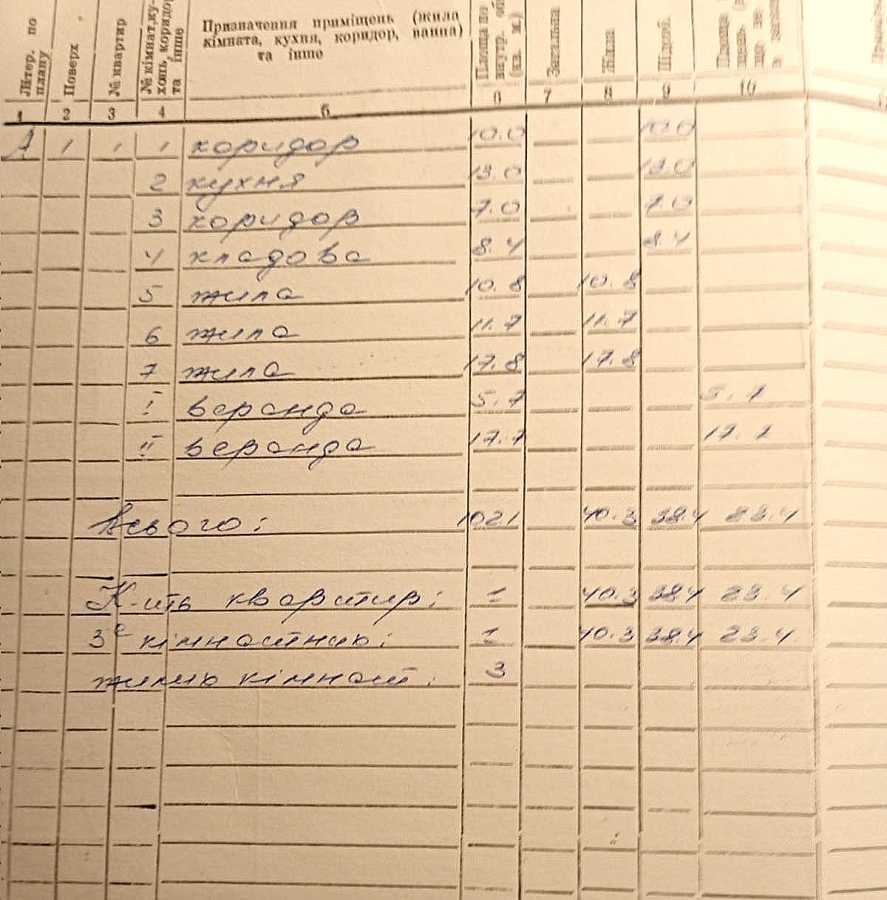 Літер. по плану
Поверх
№ квартир
№ кімнат, кухонь, коридор та інше
Призначення приміщень (жила кімната, кухня, коридор, ванна) та інше
Площа по внутр. (кв. м.)
Загальна
Жила
Підсоб.
Площа
1 2 3 4 5 6 7 8 9 10
А 1 1 1 коридор 10.0 10.0
2 кухня 13.0 13.0
3 коридор 7.0 7.0
4 кладова 8.4 8.4
5 жила 10.8 10.8
6 жила 11.7 11.7
7 жила 17.8 17.8
I веранда 5.7 5.7
II веранда 17.7 17.7
Всього: 102.1 40.3 38.4 23.4
К-ить квартир: 1 40.3 38.4 23.4
3х кімнатних: 1 40.3 38.4 23.4
жилих кімнат: 3